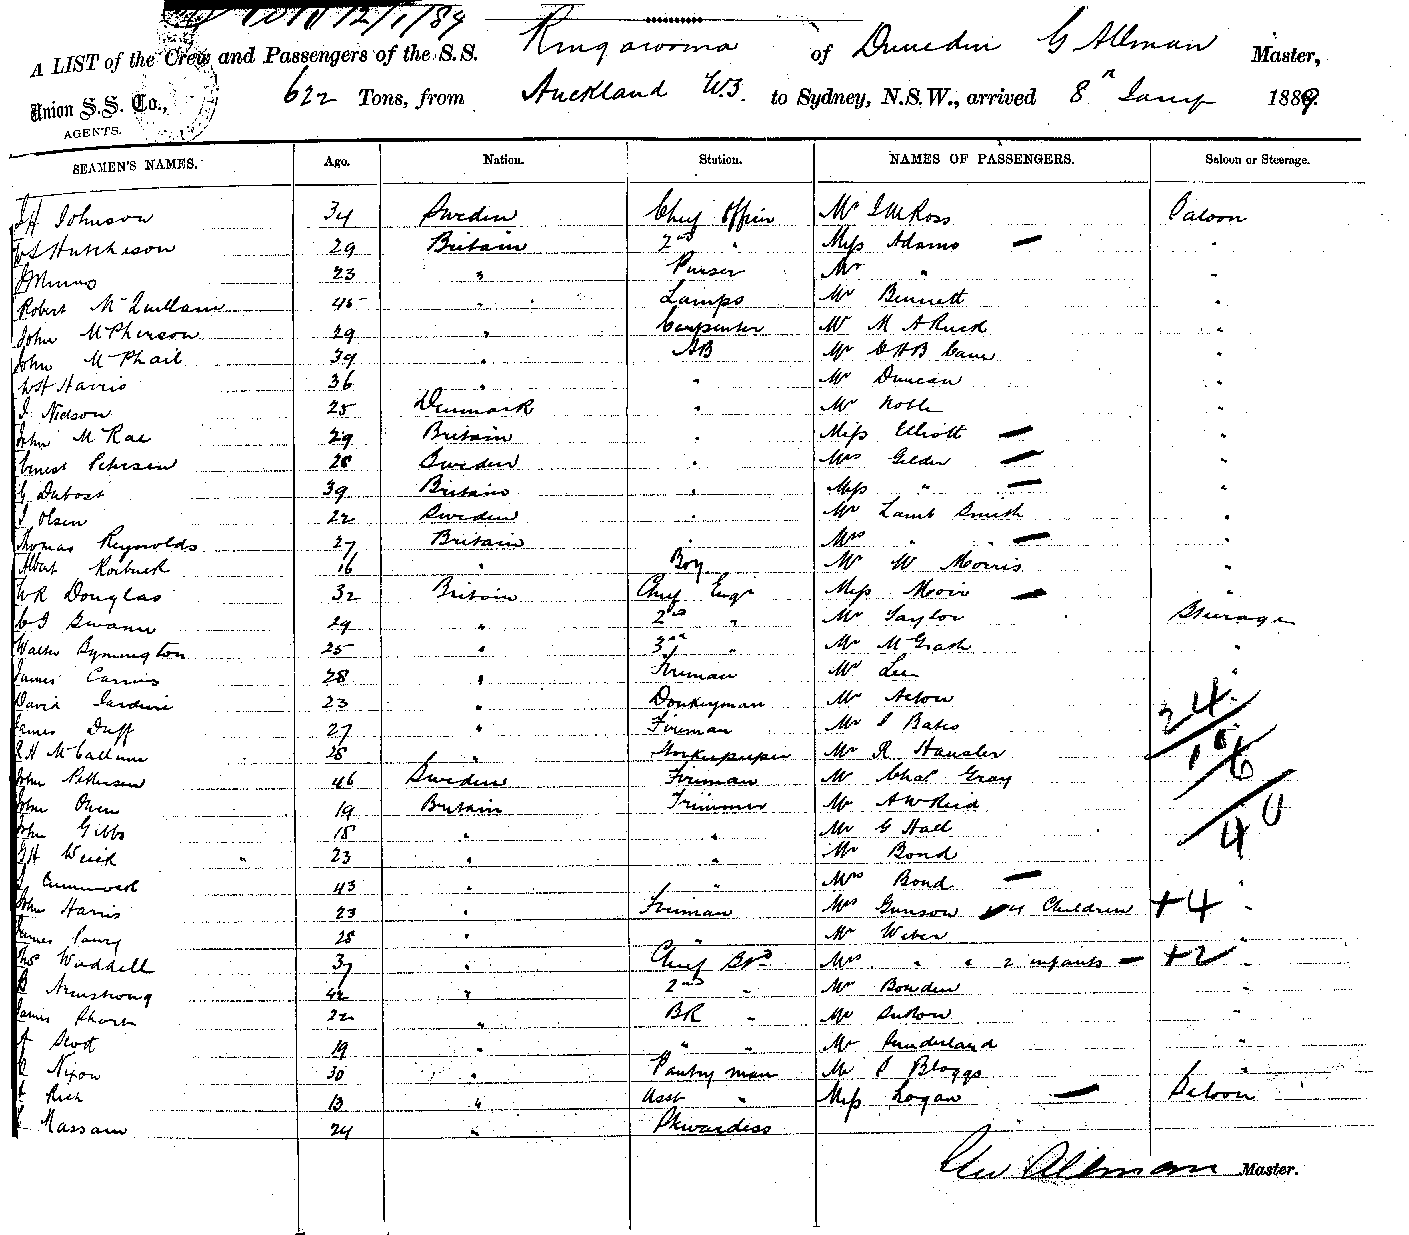 12/1/89
A LIST of the Crew and Passengers of the S.S. Ringarooma of Dunedin G Allman Master,
Union S.S. Co., AGENTS. 622 Tons, from Auckland to Sydney, N.S.W., arrived 8 Jany 1889.
SEAMEN'S NAMES. Age. Nation. Station. NAMES OF PASSENGERS. Saloon or Steerage.
Johnson 34 Sweden Chief Officer Mr Ross Saloon
Hutcheson 29 Britain 2nd " Miss Adams — "
Munro 23 " Purser Mr " "
Robert McQuillan 45 " Lamps Mr Bennett "
John McPherson 29 " Carpenter M A Ruck "
John McPhail 39 " AB Mr "
WH Harris 36 " " Mr Duncan "
Nielson 25 Denmark " Mr Noble "
John McRae 29 Britain " Miss Elliott — "
Ernest Petersen 28 Sweden " Mrs Gelder — "
G Dubost 39 Britain " Miss " — "
Olsen 22 Sweden " Mr Lamb Smith "
Thomas Reynolds 27 Britain " Mrs " " — "
Albert Roebuck 16 " Boy Mr W Morris "
WR Douglas 32 Britain Chief Engr Miss Moir — "
Swann 29 " 2nd " Mr Taylor Steerage
Walter Symington 25 " 3rd " Mr McGrath "
James 28 " Fireman Mr Lee "
David Jardine 23 " Donkeyman Mr Acton 24
James Duff 27 " Fireman Mr Bates
McCallum 28 " Storekeeper Mr R 16
John Pettersen 46 Sweden Fireman Mr Chas Gray
John 19 Britain Trimmer Mr AW Reid 40
John Gibbs 18 " " Mr G Hall
Weick 23 " " Mr Bond
43 " " Mrs Bond — "
John Harris 23 " Fireman Mrs Gunson 4 Children +4 "
James 28 " " Mr Weber "
Waddell 37 " Chief Mrs " " 2 infants — +2 "
Armstrong 42 " 2nd " Mr Bowden "
James Short 22 " BR " Mr "
Scott 19 " " " Mr Sunderland "
Nixon 30 " Pantry man Mr Bloggs "
Rich 13 " Asst " Miss Logan — Saloon
Massam 24 " Stewardess
Geo Allman Master.